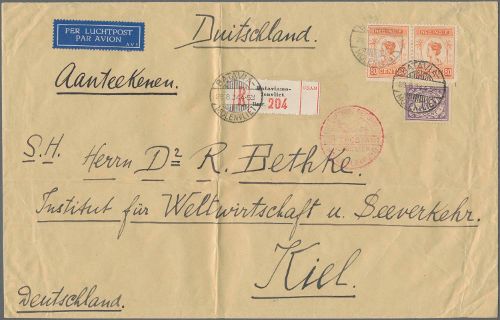 PER LUCHTPOST
PAR AVION
Duitschland.
Aanteekenen.
R
204
NED-INDIE
NED-INDIE
CENT
CENT
S.H. Herrn Dr R. Bethke.
Institut für Weltwirtschaft u. Seeverkehr.
Kiel.
Deutschland.